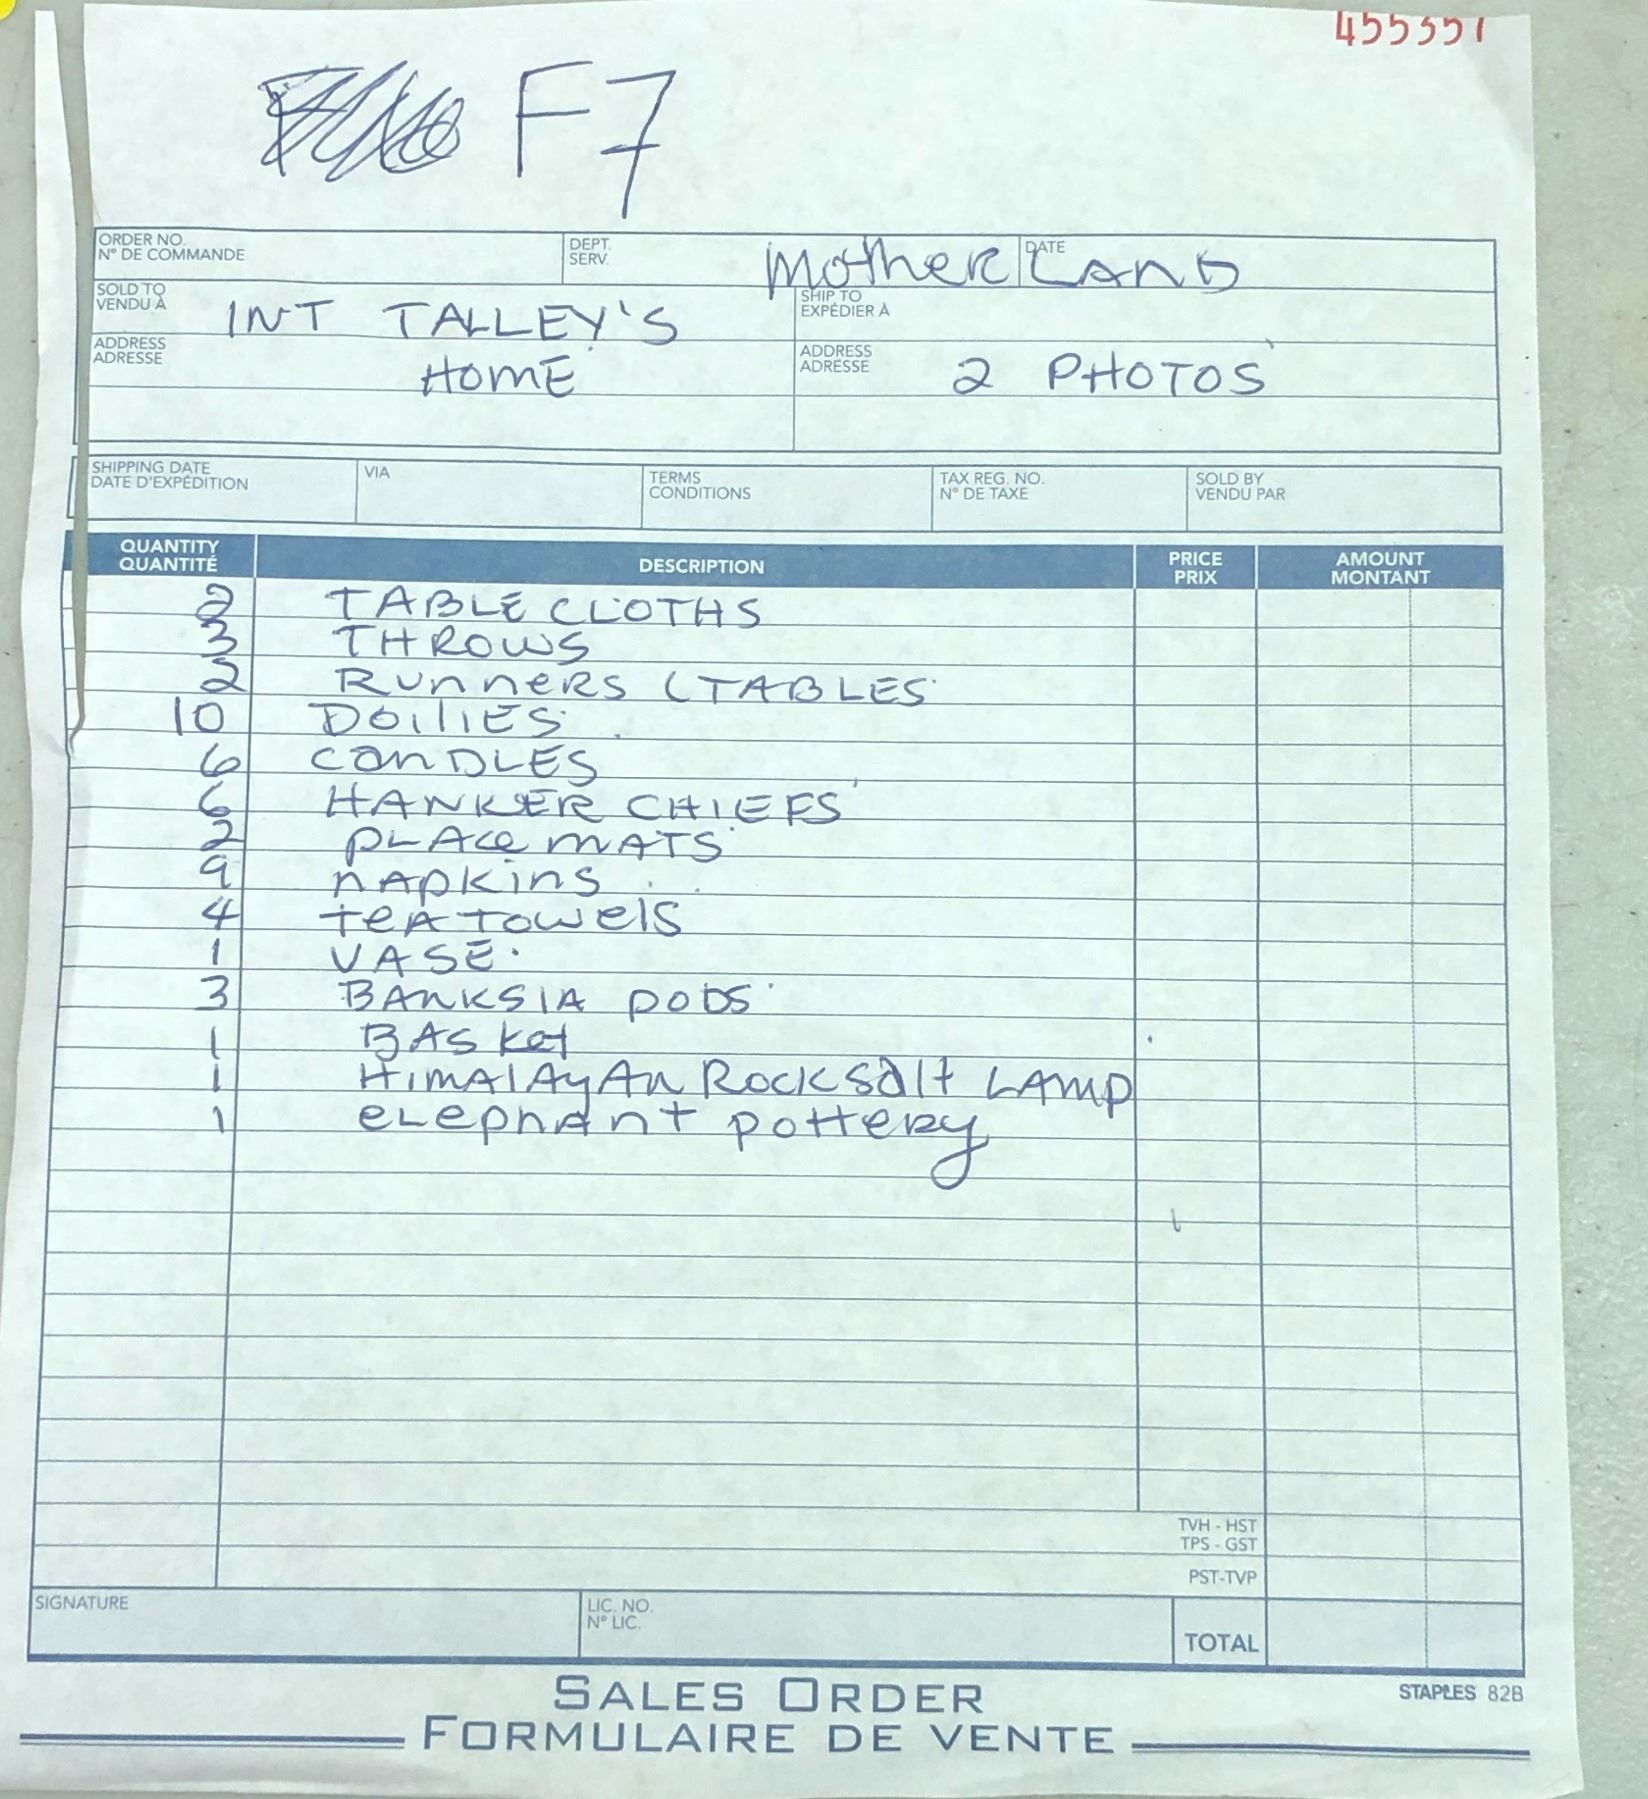 455357
F7
ORDER NO.
N° DE COMMANDE
DEPT.
SERV.
MOTHER LAND
DATE
SOLD TO
VENDU À
INT TALLEY'S
SHIP TO
EXPÉDIER À
ADDRESS
ADRESSE
HOME
ADDRESS
ADRESSE
2 PHOTOS
SHIPPING DATE
DATE D'EXPÉDITION
VIA
TERMS
CONDITIONS
TAX REG. NO.
N° DE TAXE
SOLD BY
VENDU PAR
QUANTITY
QUANTITÉ
DESCRIPTION
PRICE
PRIX
AMOUNT
MONTANT
2 TABLE CLOTHS
3 THROWS
2 RUNNERS (TABLES
10 DOILIES
6 CANDLES
6 HANKER CHIEFS
2 PLACE MATS
9 NAPKINS
4 TEA TOWELS
1 VASE
3 BANKSIA PODS
1 BASKET
1 HIMALAYAN ROCK SALT LAMP
1 ELEPHANT POTTERY
TVH - HST
TPS - GST
PST-TVP
SIGNATURE
LIC. NO.
N° LIC.
TOTAL
SALES ORDER
FORMULAIRE DE VENTE
STAPLES 82B